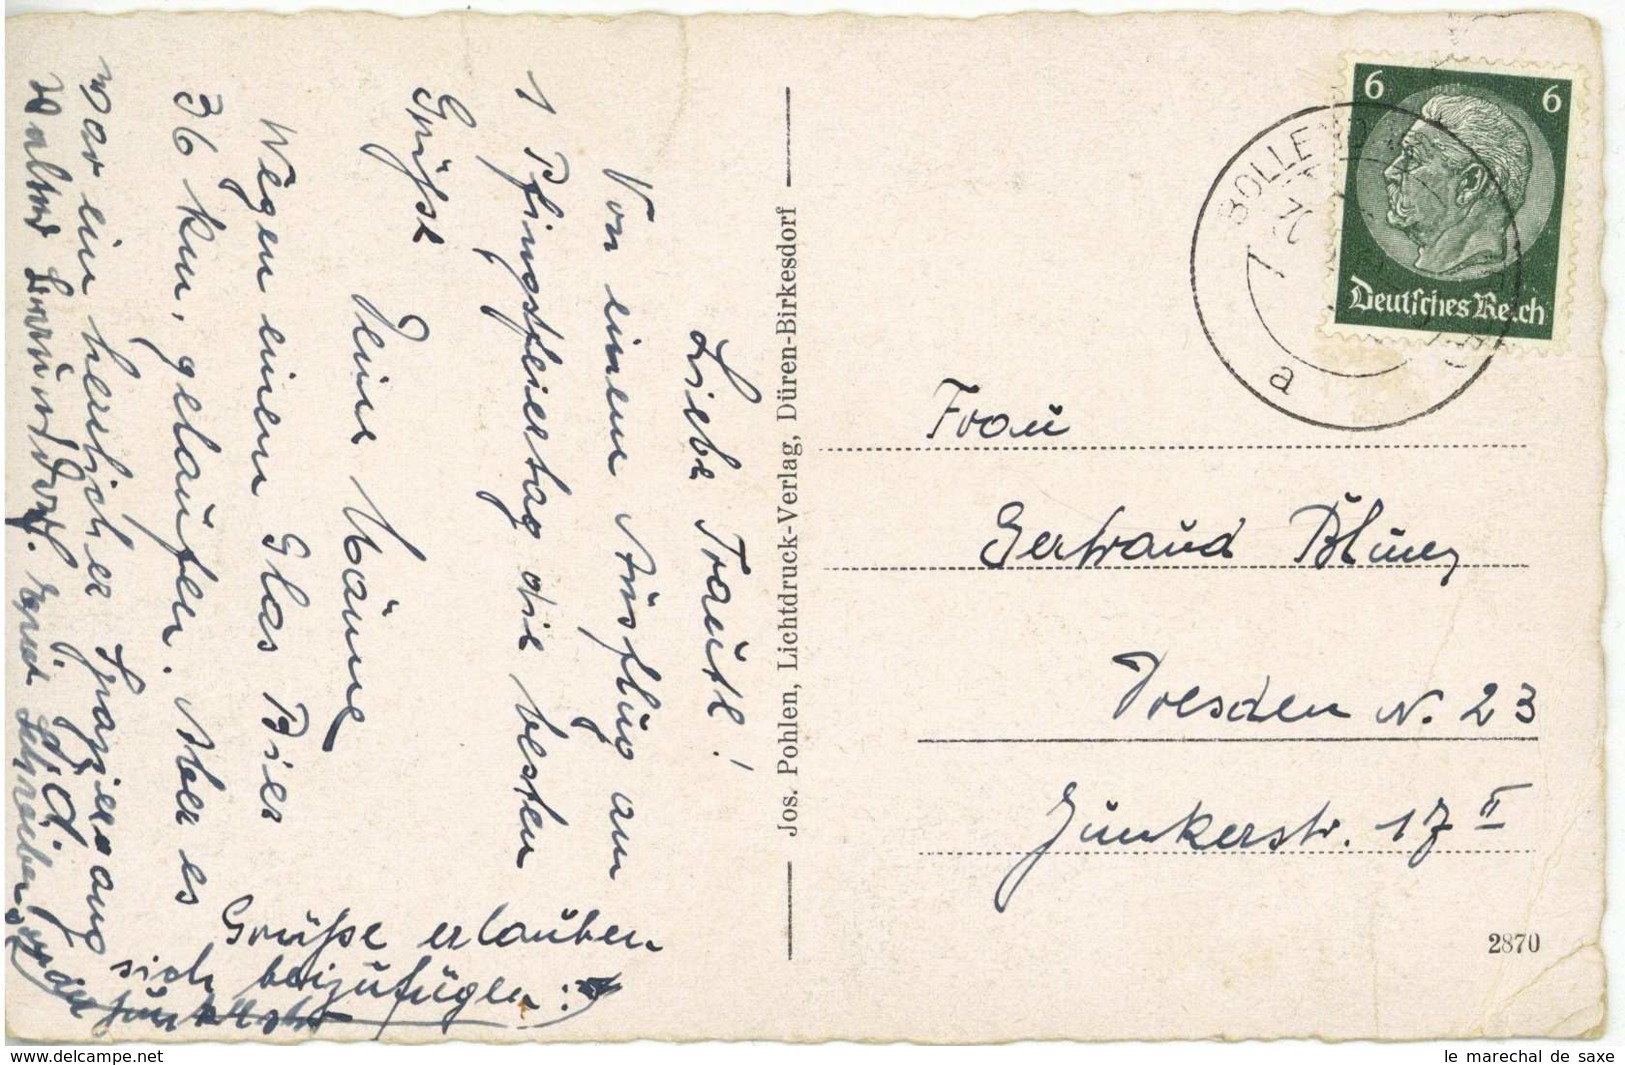 Liebe Traute!
Von einem Ausflug am
1 Pfingstfeiertag die besten
Grüsse
Deine Mäune
Wegen einem Glas Bier
36 km, gelaufen. Aber es
war ein herrlicher Spaziergang
Grüße erlauben
sich beizufügen:
Walter
Jos. Pohlen, Lichtdruck-Verlag, Düren-Birkesdorf
6 6
Deutsches Reich
BOLLEN
a
Frau
Gertraud Blümy
Dresden N. 23
Junkerstr. 17 II
2870
le marechal de saxe